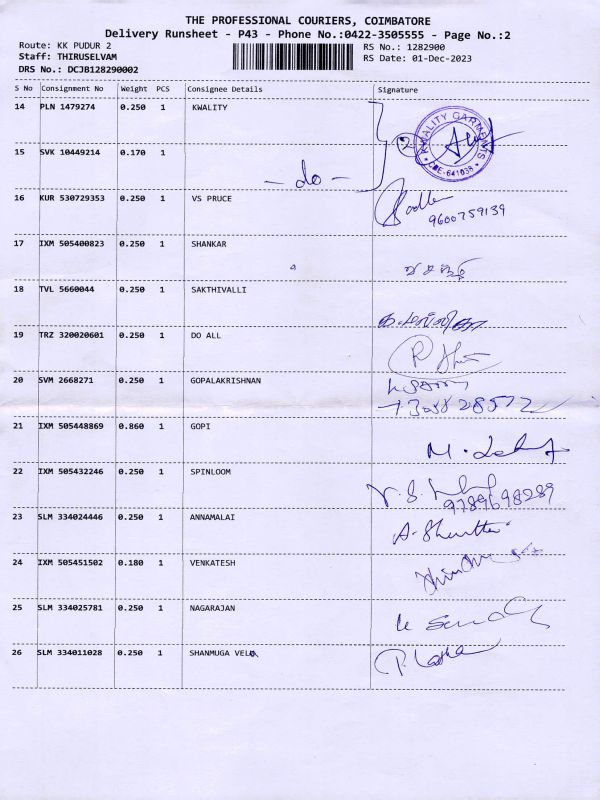 THE PROFESSIONAL COURIERS, COIMBATORE
Delivery Runsheet - P43 - Phone No.:0422-3505555 - Page No.:2
Route: KK PUDUR 2 RS No.: 1282900
Staff: THIRUSELVAM RS Date: 01-Dec-2023
DRS No.: DCJB128290002
S No Consignment No Weight PCS Consignee Details Signature
14 PLN 1479274 0.250 1 KWALITY
KWALITY GARMENTS
CBE-641038
2
15 SVK 10449214 0.170 1
- do -
16 KUR 530729353 0.250 1 VS PRUCE
9600759139
17 IXM 505400823 0.250 1 SHANKAR
18 TVL 5660044 0.250 1 SAKTHIVALLI
19 TRZ 320020601 0.250 1 DO ALL
20 SVM 2668271 0.250 1 GOPALAKRISHNAN
21 IXM 505448869 0.860 1 GOPI
22 IXM 505432246 0.250 1 SPINLOOM
9789698289
23 SLM 334024446 0.250 1 ANNAMALAI
24 IXM 505451502 0.180 1 VENKATESH
25 SLM 334025781 0.250 1 NAGARAJAN
26 SLM 334011028 0.250 1 SHANMUGA VEL